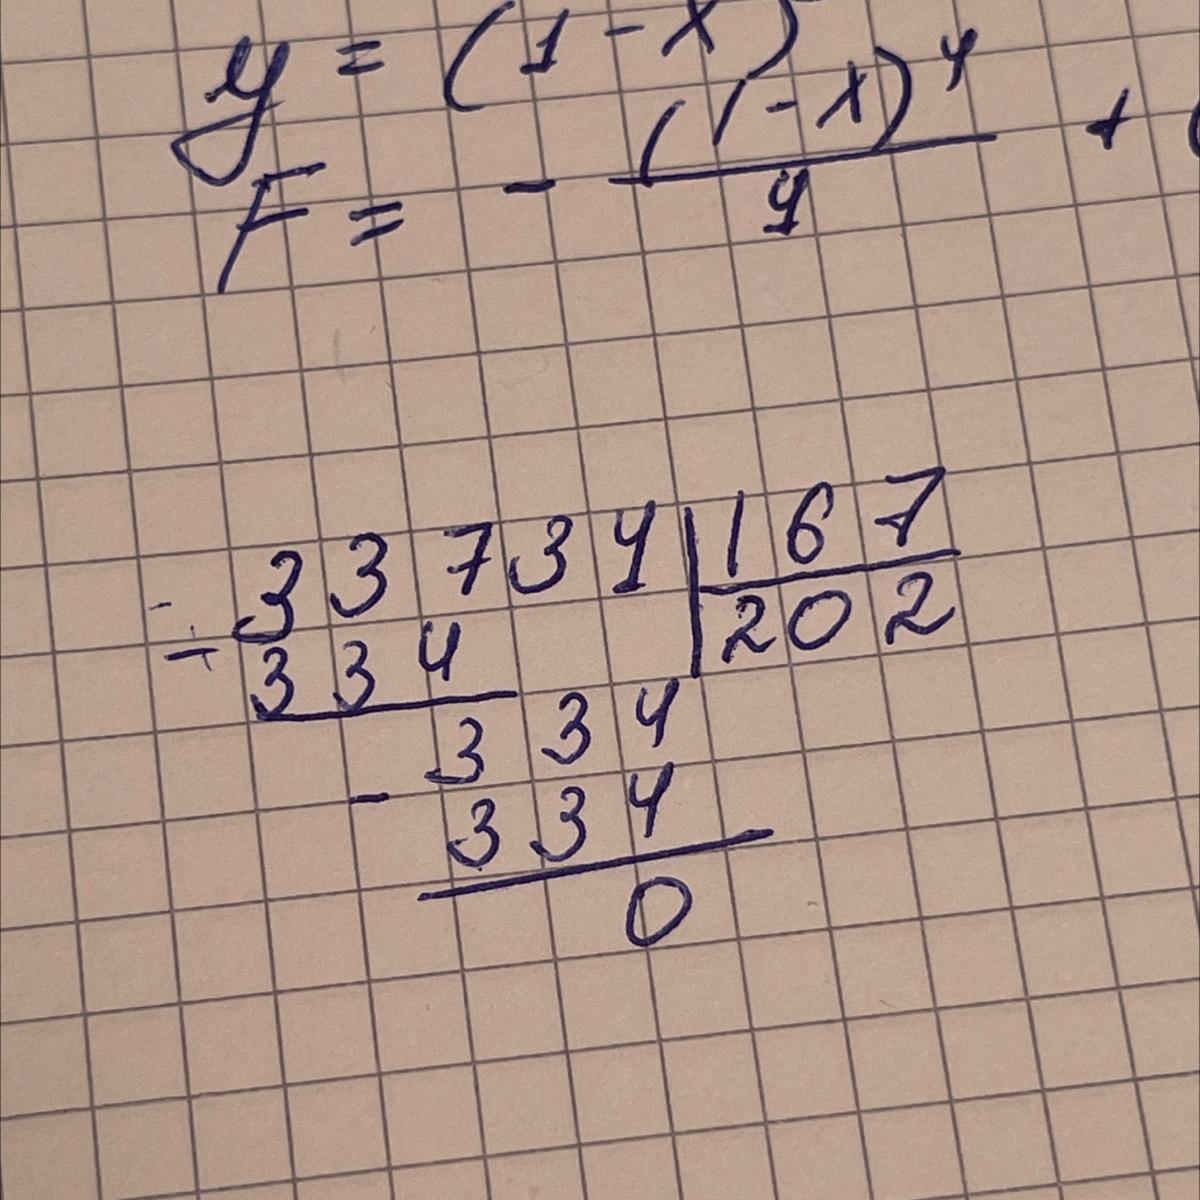 y = (1 - x)
F = - (1 - x)^4 / 4 + (
33734 | 167
- 334 | 202
334
- 334
0